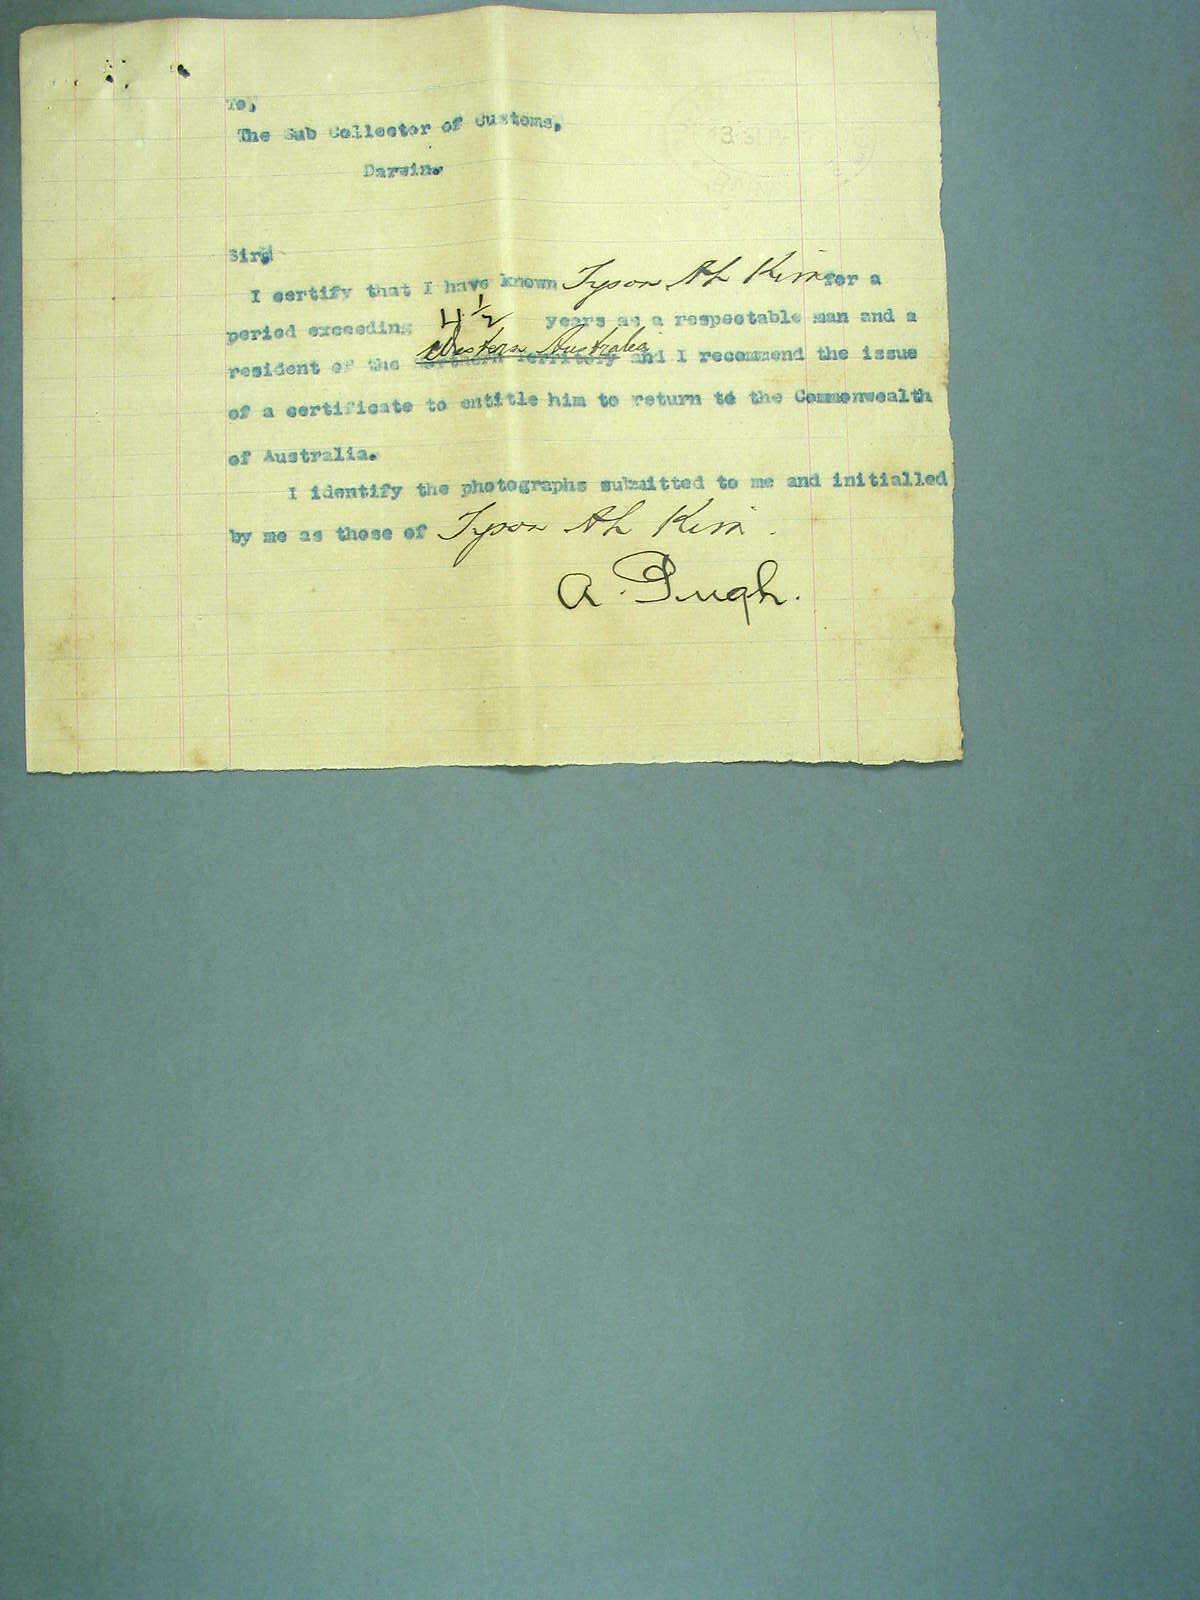 To,
The Sub Collector of Customs,
Darwin.
Sir,
I certify that I have known Tyson Ah Kim for a
period exceeding 4 1/2 years as a respectable man and a
Western Australia
resident of the Northern Territory and I recommend the issue
of a certificate to entitle him to return to the Commonwealth
of Australia.
I identify the photographs submitted to me and initialled
by me as those of Tyson Ah Kim.
A. Pugh.